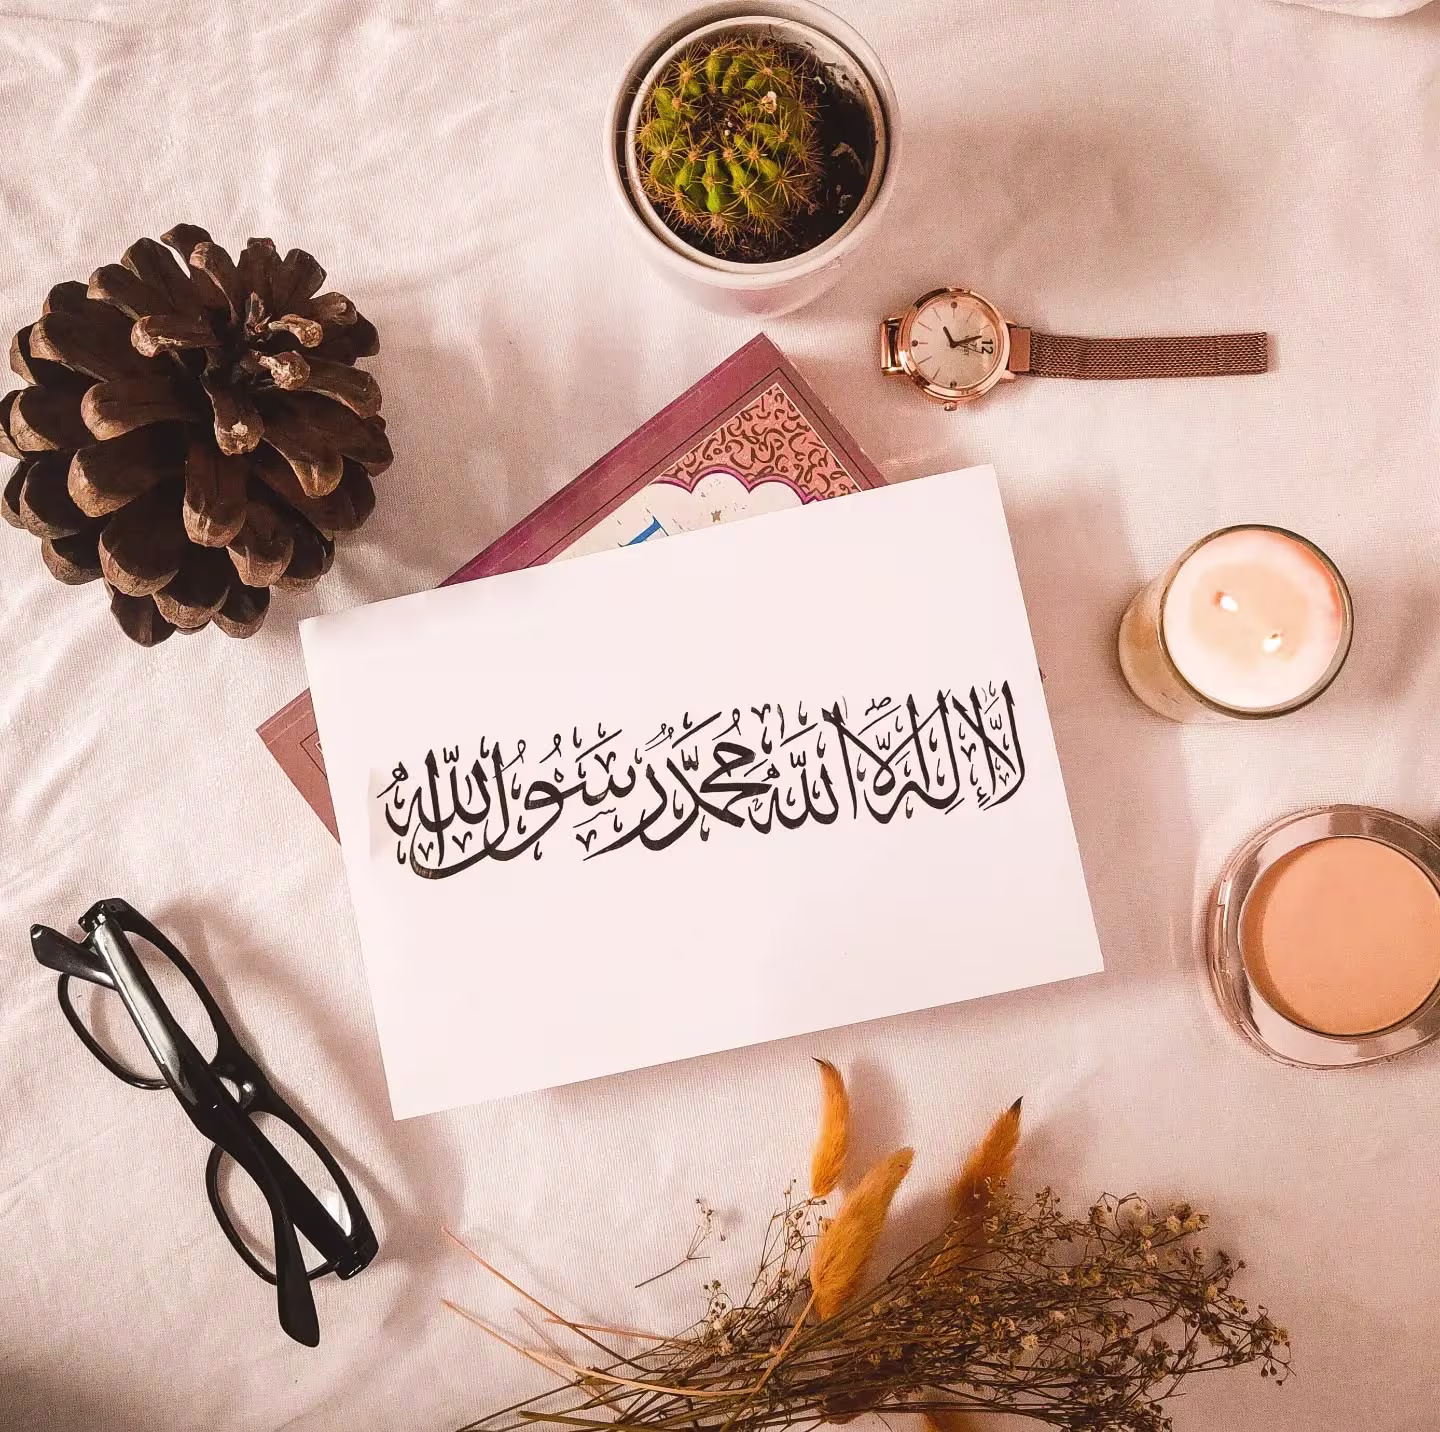 12
لَا إِلَهَ إِلَّا اللهُ مُحَمَّدٌ رَسُولُ اللهِ